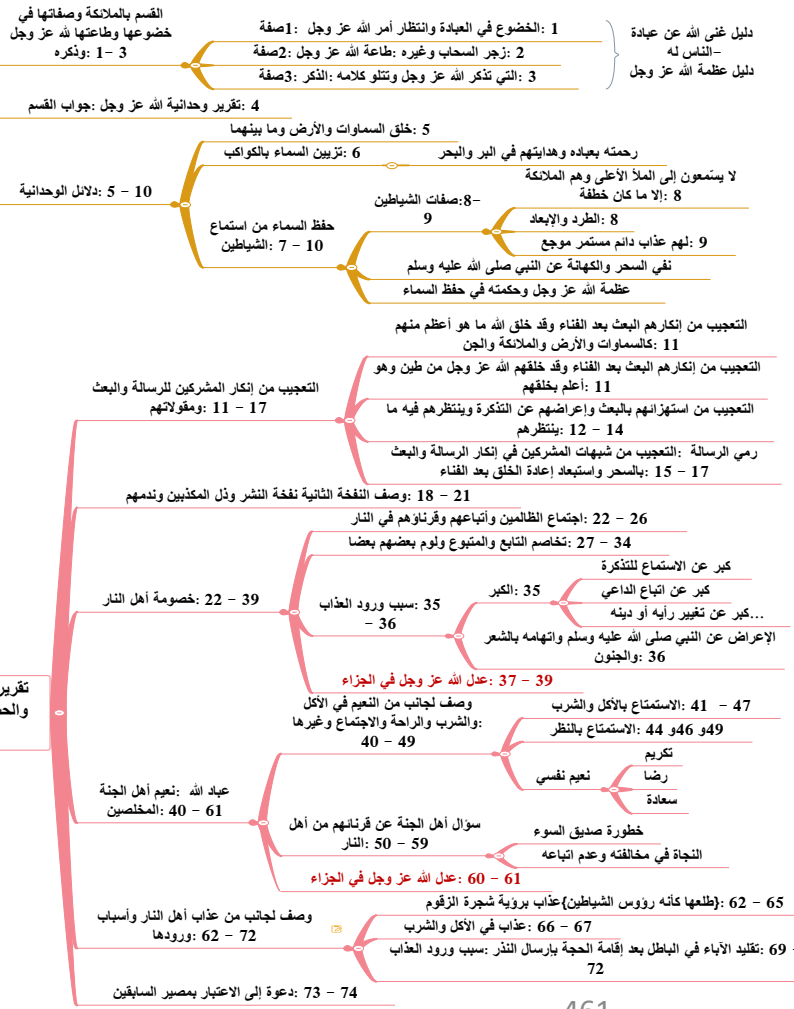 القسم بالملائكة وصفاتها في
خضوعها وطاعتها لله عز وجل
وذكره: 1 – 3
صفة1: الخضوع في العبادة وانتظار أمر الله عز وجل: 1
صفة2: طاعة الله عز وجل: زجر السحاب وغيره: 2
صفة3: الذكر: التي تذكر الله عز وجل وتتلو كلامه: 3
دليل غنى الله عن عبادة
الناس له–
دليل عظمة الله عز وجل
جواب القسم: تقرير وحدانية الله عز وجل: 4
دلائل الوحدانية: 5 – 10
خلق السماوات والأرض وما بينهما: 5
تزيين السماء بالكواكب: 6
رحمته بعباده وهدايتهم في البر والبحر
حفظ السماء من استماع
الشياطين: 7 – 10
صفات الشياطين:8–
9
لا يسمعون إلى الملأ الأعلى وهم الملائكة
إلا ما كان خطفة: 8
الطرد والإبعاد: 8
لهم عذاب دائم مستمر موجع: 9
نفي السحر والكهانة عن النبي صلى الله عليه وسلم
عظمة الله عز وجل وحكمته في حفظ السماء
تقرير
التعجيب من إنكار المشركين للرسالة والبعث
ومقولاتهم: 11 – 17
التعجيب من إنكارهم البعث بعد الفناء وقد خلق الله ما هو أعظم منهم
كالسماوات والأرض والملائكة والجن: 11
التعجيب من إنكارهم البعث بعد الفناء وقد خلقهم الله عز وجل من طين وهو
أعلم بخلقهم: 11
التعجيب من استهزائهم بالبعث وإعراضهم عن التذكرة وينتظرهم فيه ما
ينتظرهم: 12 – 14
التعجيب من شبهات المشركين في إنكار الرسالة والبعث: رمي الرسالة
بالسحر واستبعاد إعادة الخلق بعد الفناء: 15 – 17
وصف النفخة الثانية نفخة النشر وذل المكذبين وندمهم: 18 – 21
خصومة أهل النار: 22 – 39
اجتماع الظالمين وأتباعهم وقرناؤهم في النار: 22 – 26
تخاصم التابع والمتبوع ولوم بعضهم بعضا: 27 – 34
سبب ورود العذاب: 35
– 36
الكبر: 35
كبر عن الاستماع للتذكرة
كبر عن اتباع الداعي
كبر عن تغيير رأيه أو دينه...
الإعراض عن النبي صلى الله عليه وسلم واتهامه بالشعر
والجنون: 36
عدل الله عز وجل في الجزاء: 37 – 39
نعيم أهل الجنة: عباد الله
المخلصين: 40 – 61
وصف لجانب من النعيم في الأكل
والشرب والراحة والاجتماع وغيرها:
40 – 49
الاستمتاع بالأكل والشرب: 41 – 47
الاستمتاع بالنظر: 44 و46 و49
نعيم نفسي
تكريم
رضا
سعادة
سؤال أهل الجنة عن قرنائهم من أهل
النار: 50 – 59
خطورة صديق السوء
النجاة في مخالفته وعدم اتباعه
عدل الله عز وجل في الجزاء: 60 – 61
وصف لجانب من عذاب أهل النار وأسباب
ورودها: 62 – 72
عذاب برؤية شجرة الزقوم{طلعها كأنه رؤوس الشياطين}: 62 – 65
عذاب في الأكل والشرب: 66 – 67
سبب ورود العذاب: تقليد الآباء في الباطل بعد إقامة الحجة بإرسال النذر: 69 –
72
دعوة إلى الاعتبار بمصير السابقين: 73 – 74